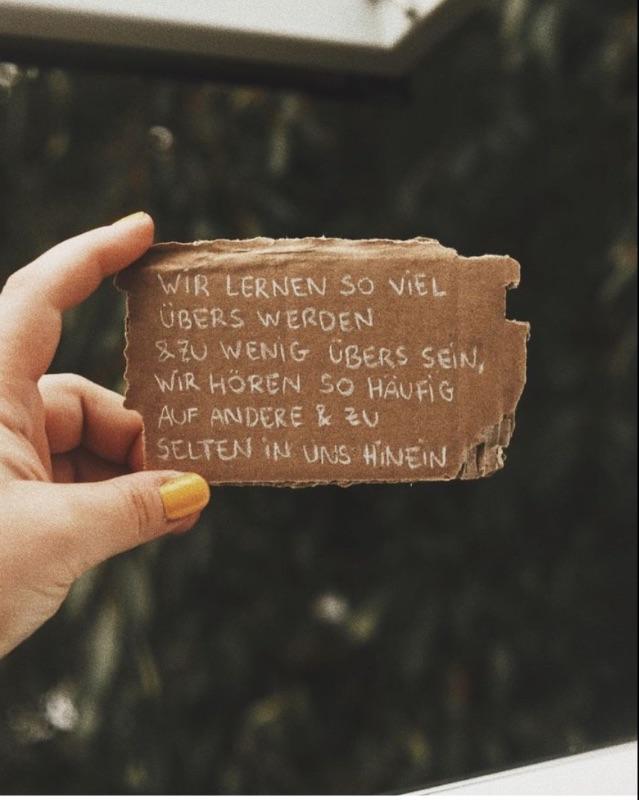 WIR LERNEN SO VIEL
ÜBERS WERDEN
& ZU WENIG ÜBERS SEIN,
WIR HÖREN SO HÄUFIG
AUF ANDERE & ZU
SELTEN IN UNS HINEIN